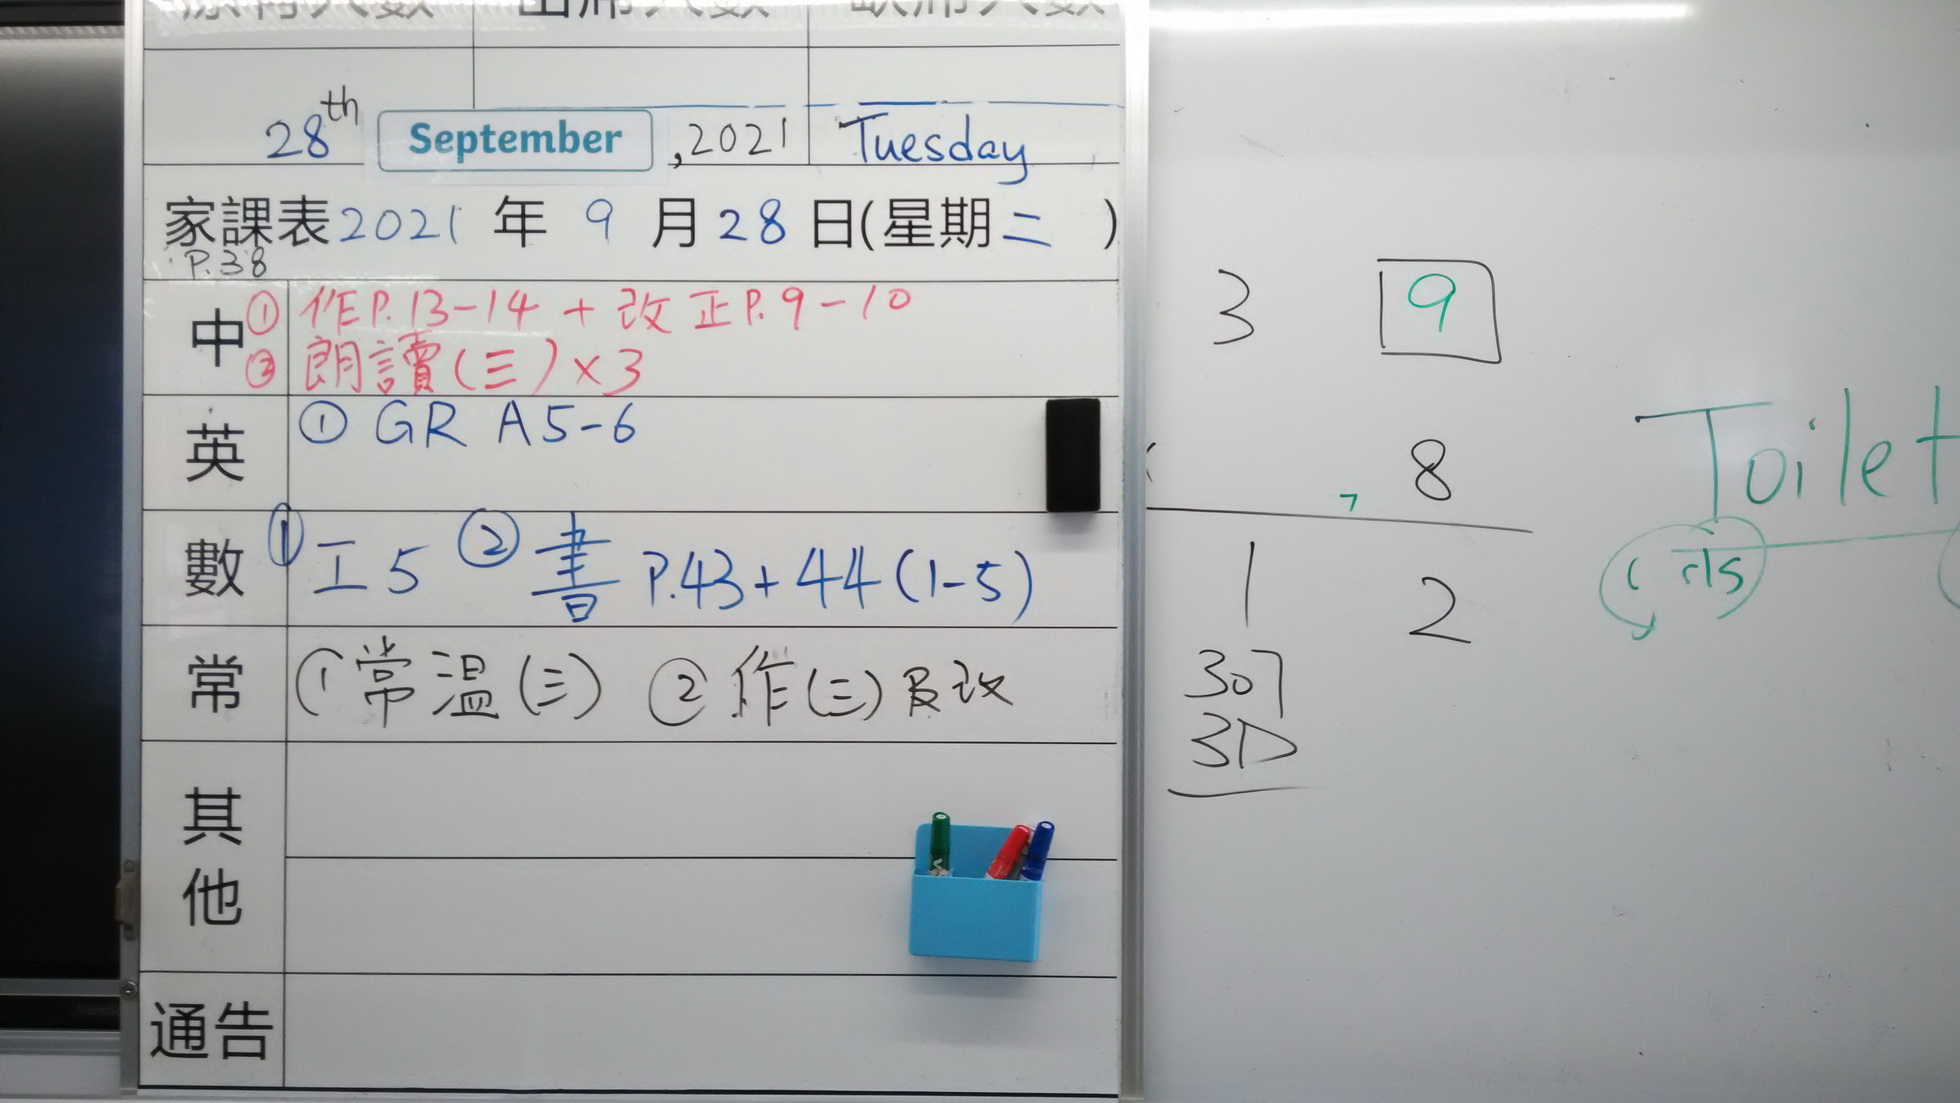 應有人數 出席人數 缺席人數
28th September ,2021 Tuesday
家課表2021年 9月28日(星期二 )
P.38
中 ① 作P.13-14 + 改正P.9-10
② 朗讀(三)×3
英 ① GR A5-6
數 ① 工5 ② 書 P.43+44(1-5)
常 ① 常溫(三) ② 作(三)及改
其他
通告
3 9
8
7
1 2
307
3D
Toilet